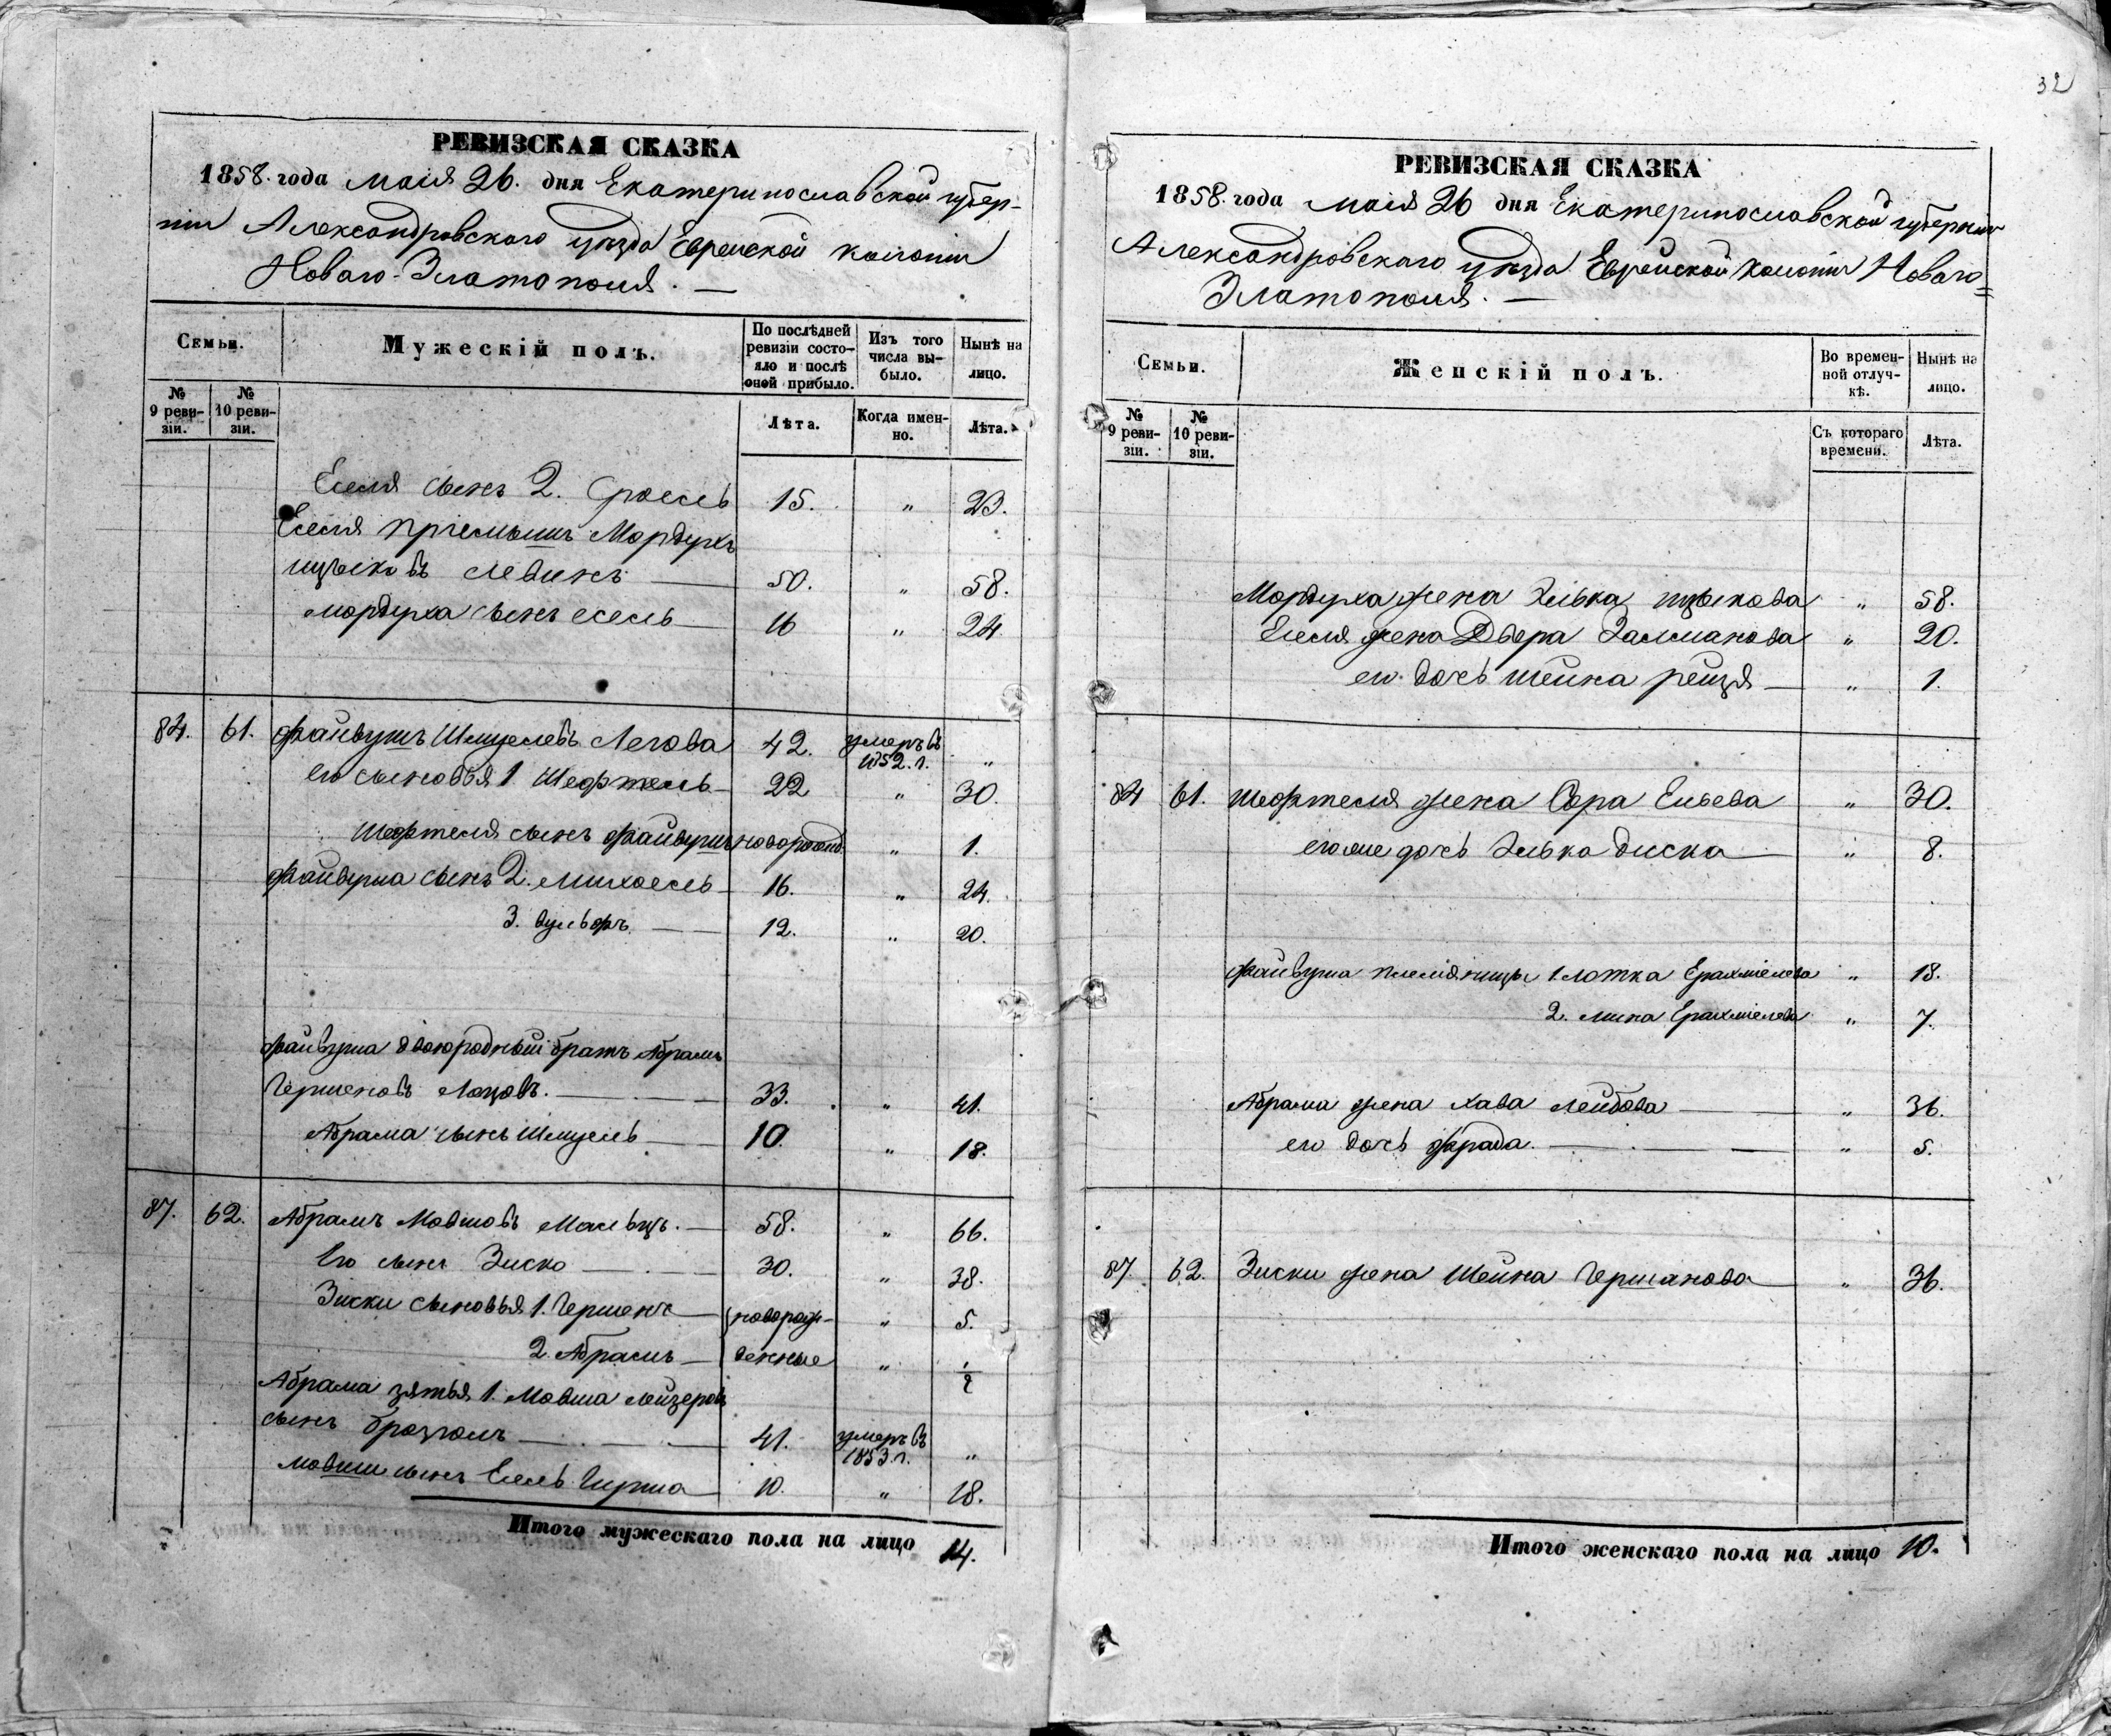 32
РЕВИЗСКАЯ СКАЗКА
1858. года маія 26. дня Екатеринославской губер-
ніи Александровскаго уѣзда Еврейской колоніи
Новаго-Златополя. —
Семьи.
Мужескій полъ.
По послѣдней ревизіи состо-
яло и послѣ оной прибыло.
Изъ того числа вы-
было.
Нынѣ на лицо.
№ 9 реви-
зіи.
№ 10 реви-
зіи.
Лѣта.
Когда имен-
но.
Лѣта.
Еселя сынъ 2. Сроель 15. " 23.
Еселя пріемышъ Мордухъ
ицьковъ Левинъ — 50. " 58.
Мордуха сынъ есель — 16 " 24
84. 61. Файвушъ Шмуелевъ 42. умеръ въ 1852. г. "
его сыновья 1 Шефтель — 22 " 30.
Шефтеля сынъ Файвушъ новорожд. " 1.
Файвуша сынъ 2. Михоель — 16. " 24.
3. вульфъ — 12. " 20.
Файвуша двоюродный братъ Абрамъ
Гершеновъ — 33. " 41.
Абрама сынъ Шмуель — 10. " 18.
87. 62. Абрамъ Мовшовъ Мальцъ. — 58. " 66.
Его сынъ Зиско — 30. " 38.
Зиски сыновья 1. Гершенъ — новорож- " 5.
2. Абрамъ — денные "
Абрама зятья 1. Мовша лейзеровъ
сынъ — 41. умеръ въ 1853. г. "
мовши сынъ Есель Гирша — 10. " 18.
Итого мужескаго пола на лицо 14.
РЕВИЗСКАЯ СКАЗКА
1858. года маія 26 дня Екатеринославской губерніи
Александровскаго уѣзда Еврейской колоніи Новаго=
Златополя. —
Семьи.
Женскій полъ.
Во времен-
ной отлуч-
кѣ.
Нынѣ на лицо.
№ 9 реви-
зіи.
№ 10 реви-
зіи.
Съ котораго времени.
Лѣта.
Мордуха жена Элька ицькова " 58.
Еселя жена Двера Залманова " 20.
его дочь шейна рейзя — " 1.
84 61. Шефтеля жена Сора Ельева " 30.
его же дочь Элька диска — " 8.
Файвуша племянницы 1. лотка Ерахміелева " 18.
2. мина Ерахміелева " 7.
Абрама жена хава лейбова — " 36.
его дочь фрада. — " 5.
87. 62. Зиски жена Шейна Гершанова — " 36.
Итого женскаго пола на лицо 10.